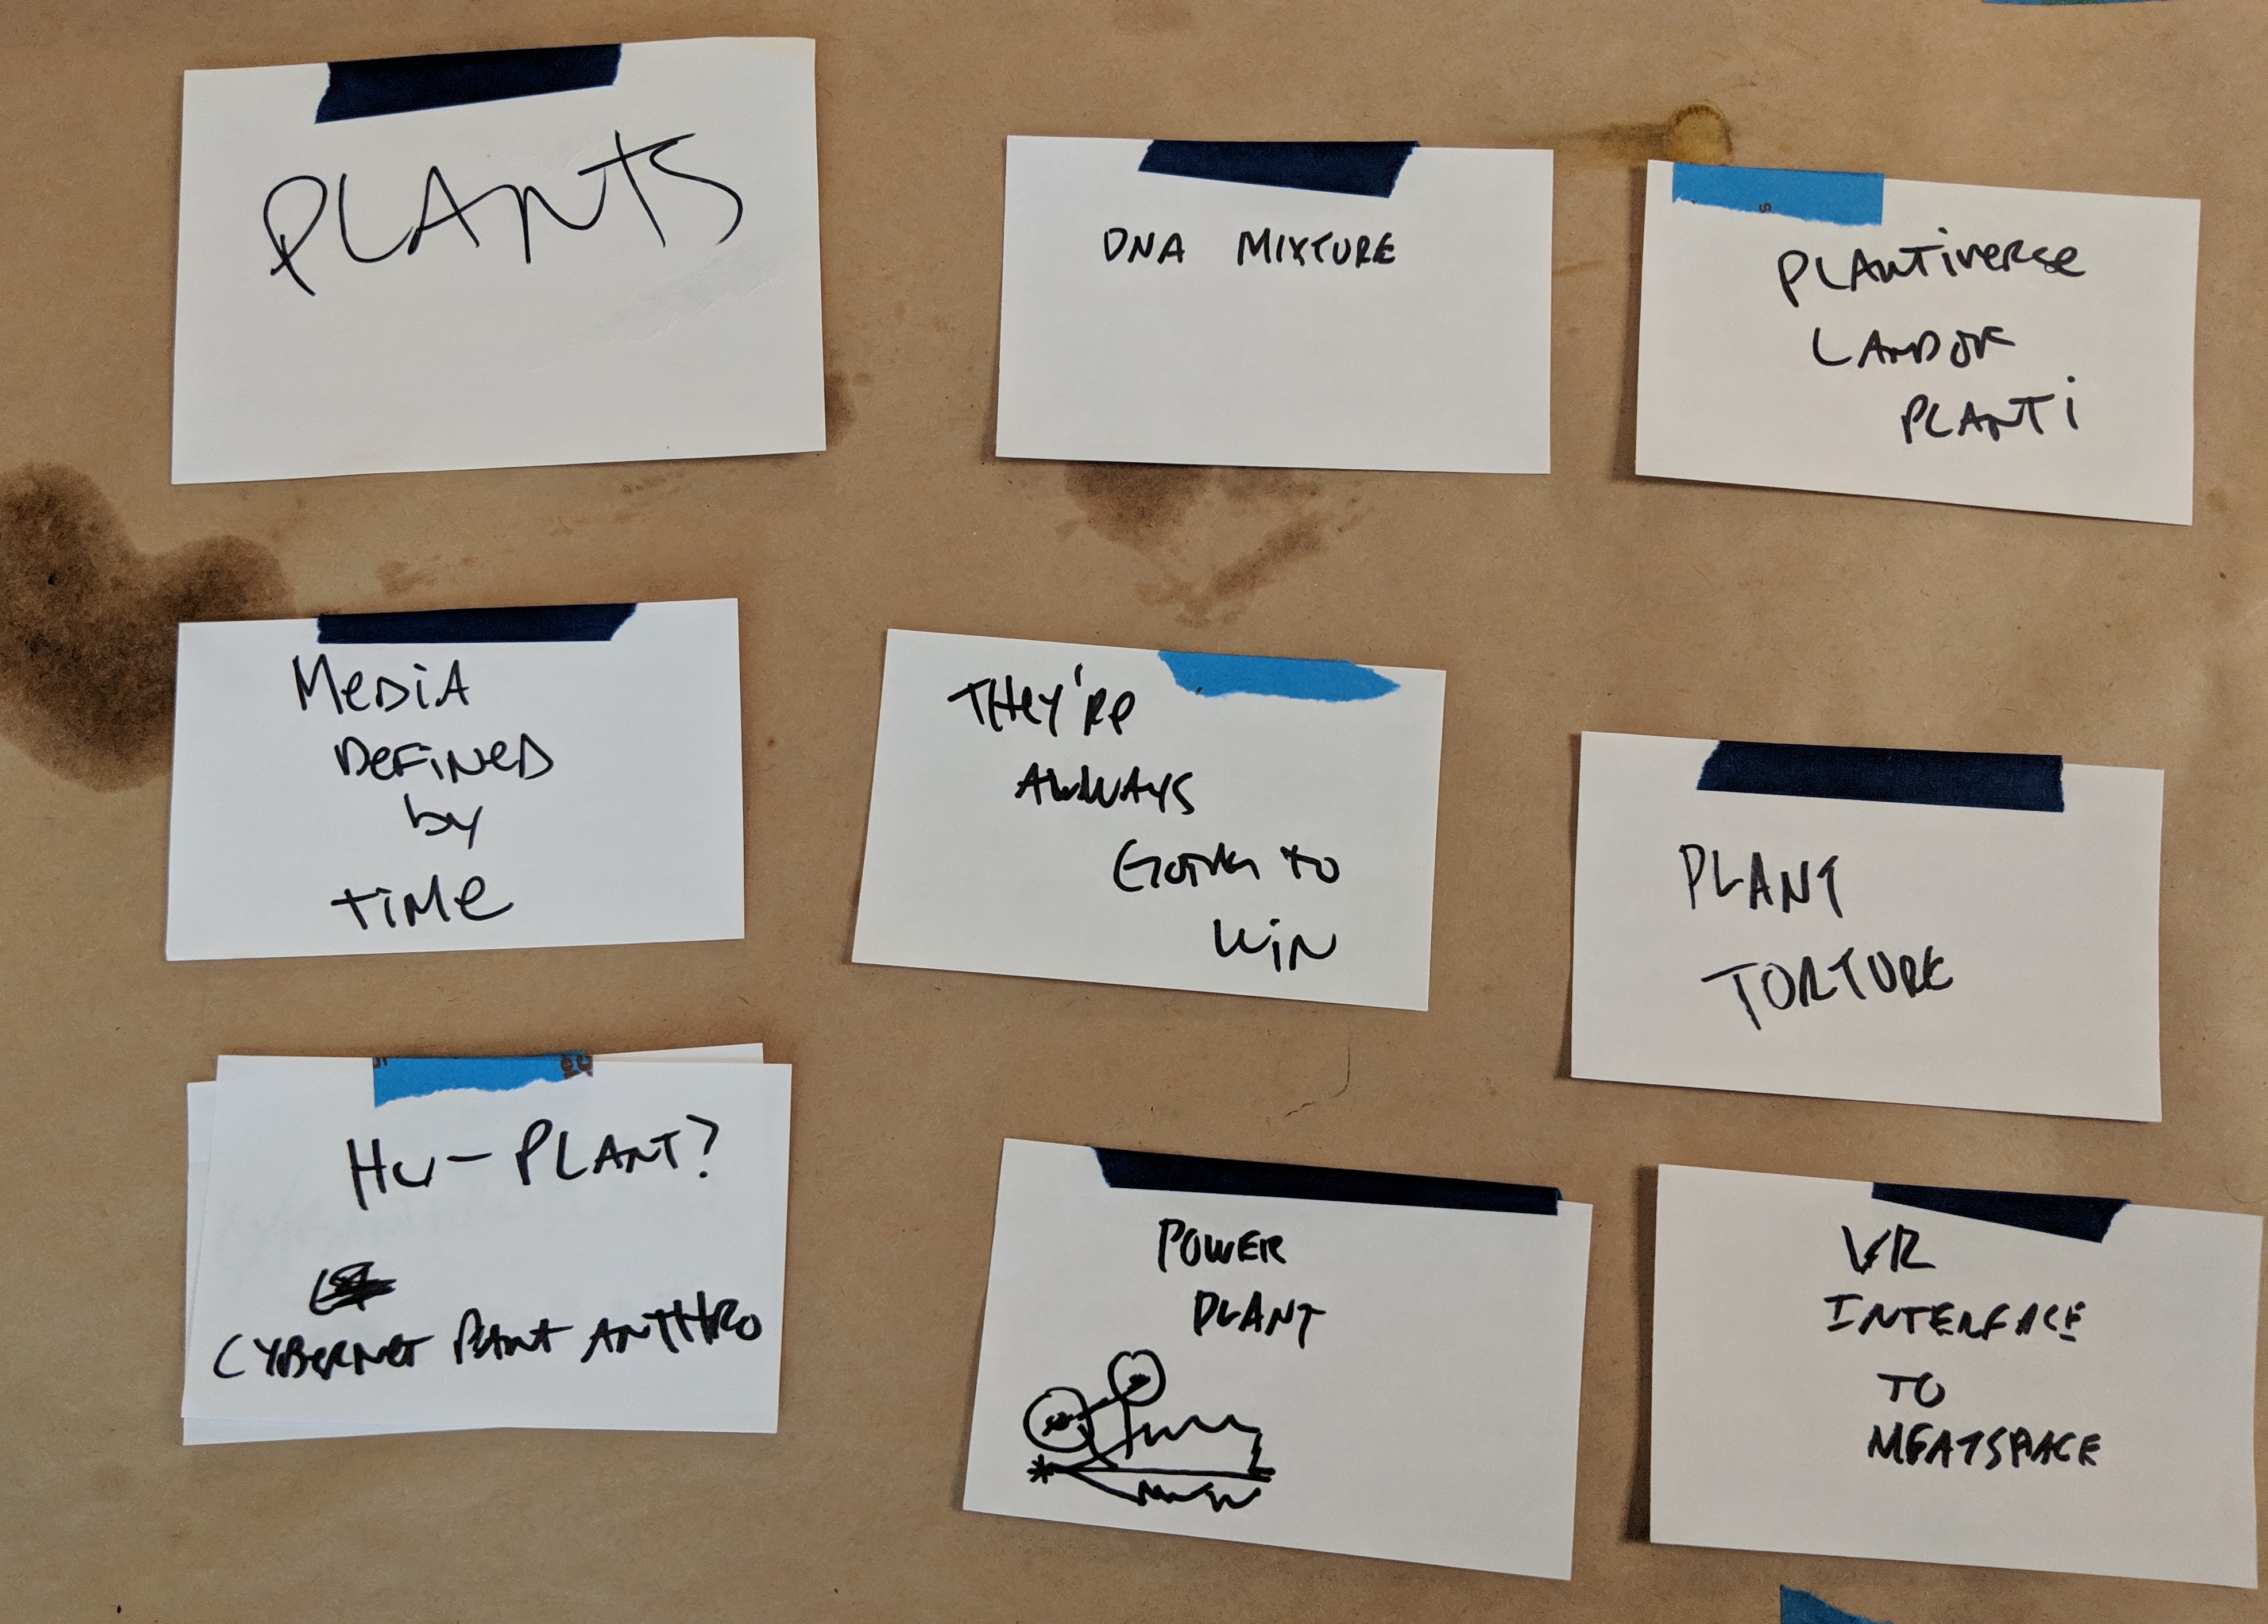 PLANTS
DNA MIXTURE
PLANTiverse
LAND OF
PLANTi
MeDiA
DeFiNeD
by
TiMe
THey're
ALWAYS
GOING TO
WiN
PLANT
TORTURE
HU-PLANT?
CYBERNET PLANT ANTHRO
POWER
PLANT
VR
INTERFACE
TO
MEATSPACE